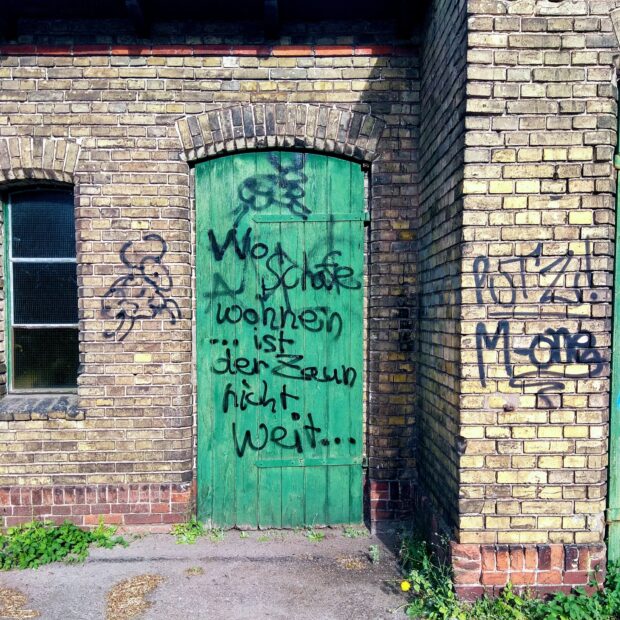 Wo
Schafe
wohnen
... ist
der Zaun
nicht
Weit...
PUTZ!
M-one